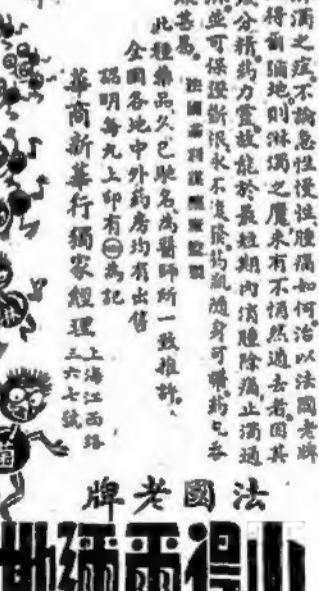 濁之症。不論急性慢性腫痛如何。治以法國老牌
得爾彌地則淋濁之魔。未有不悄然遁去者。因其
分精。药力靈。故能於最短期內消腫除痛。止濁通
並可保證斷根。永不復發。药瓶隨身可攜。药
甚易。法國
此種藥品久已馳名。為醫師所一致推許。
全國各地中外药房均有出售
認明每丸上印有㊀為記
華商新華行獨家經理
上海江西路
三六七號
菌
法國老牌
山得爾彌地